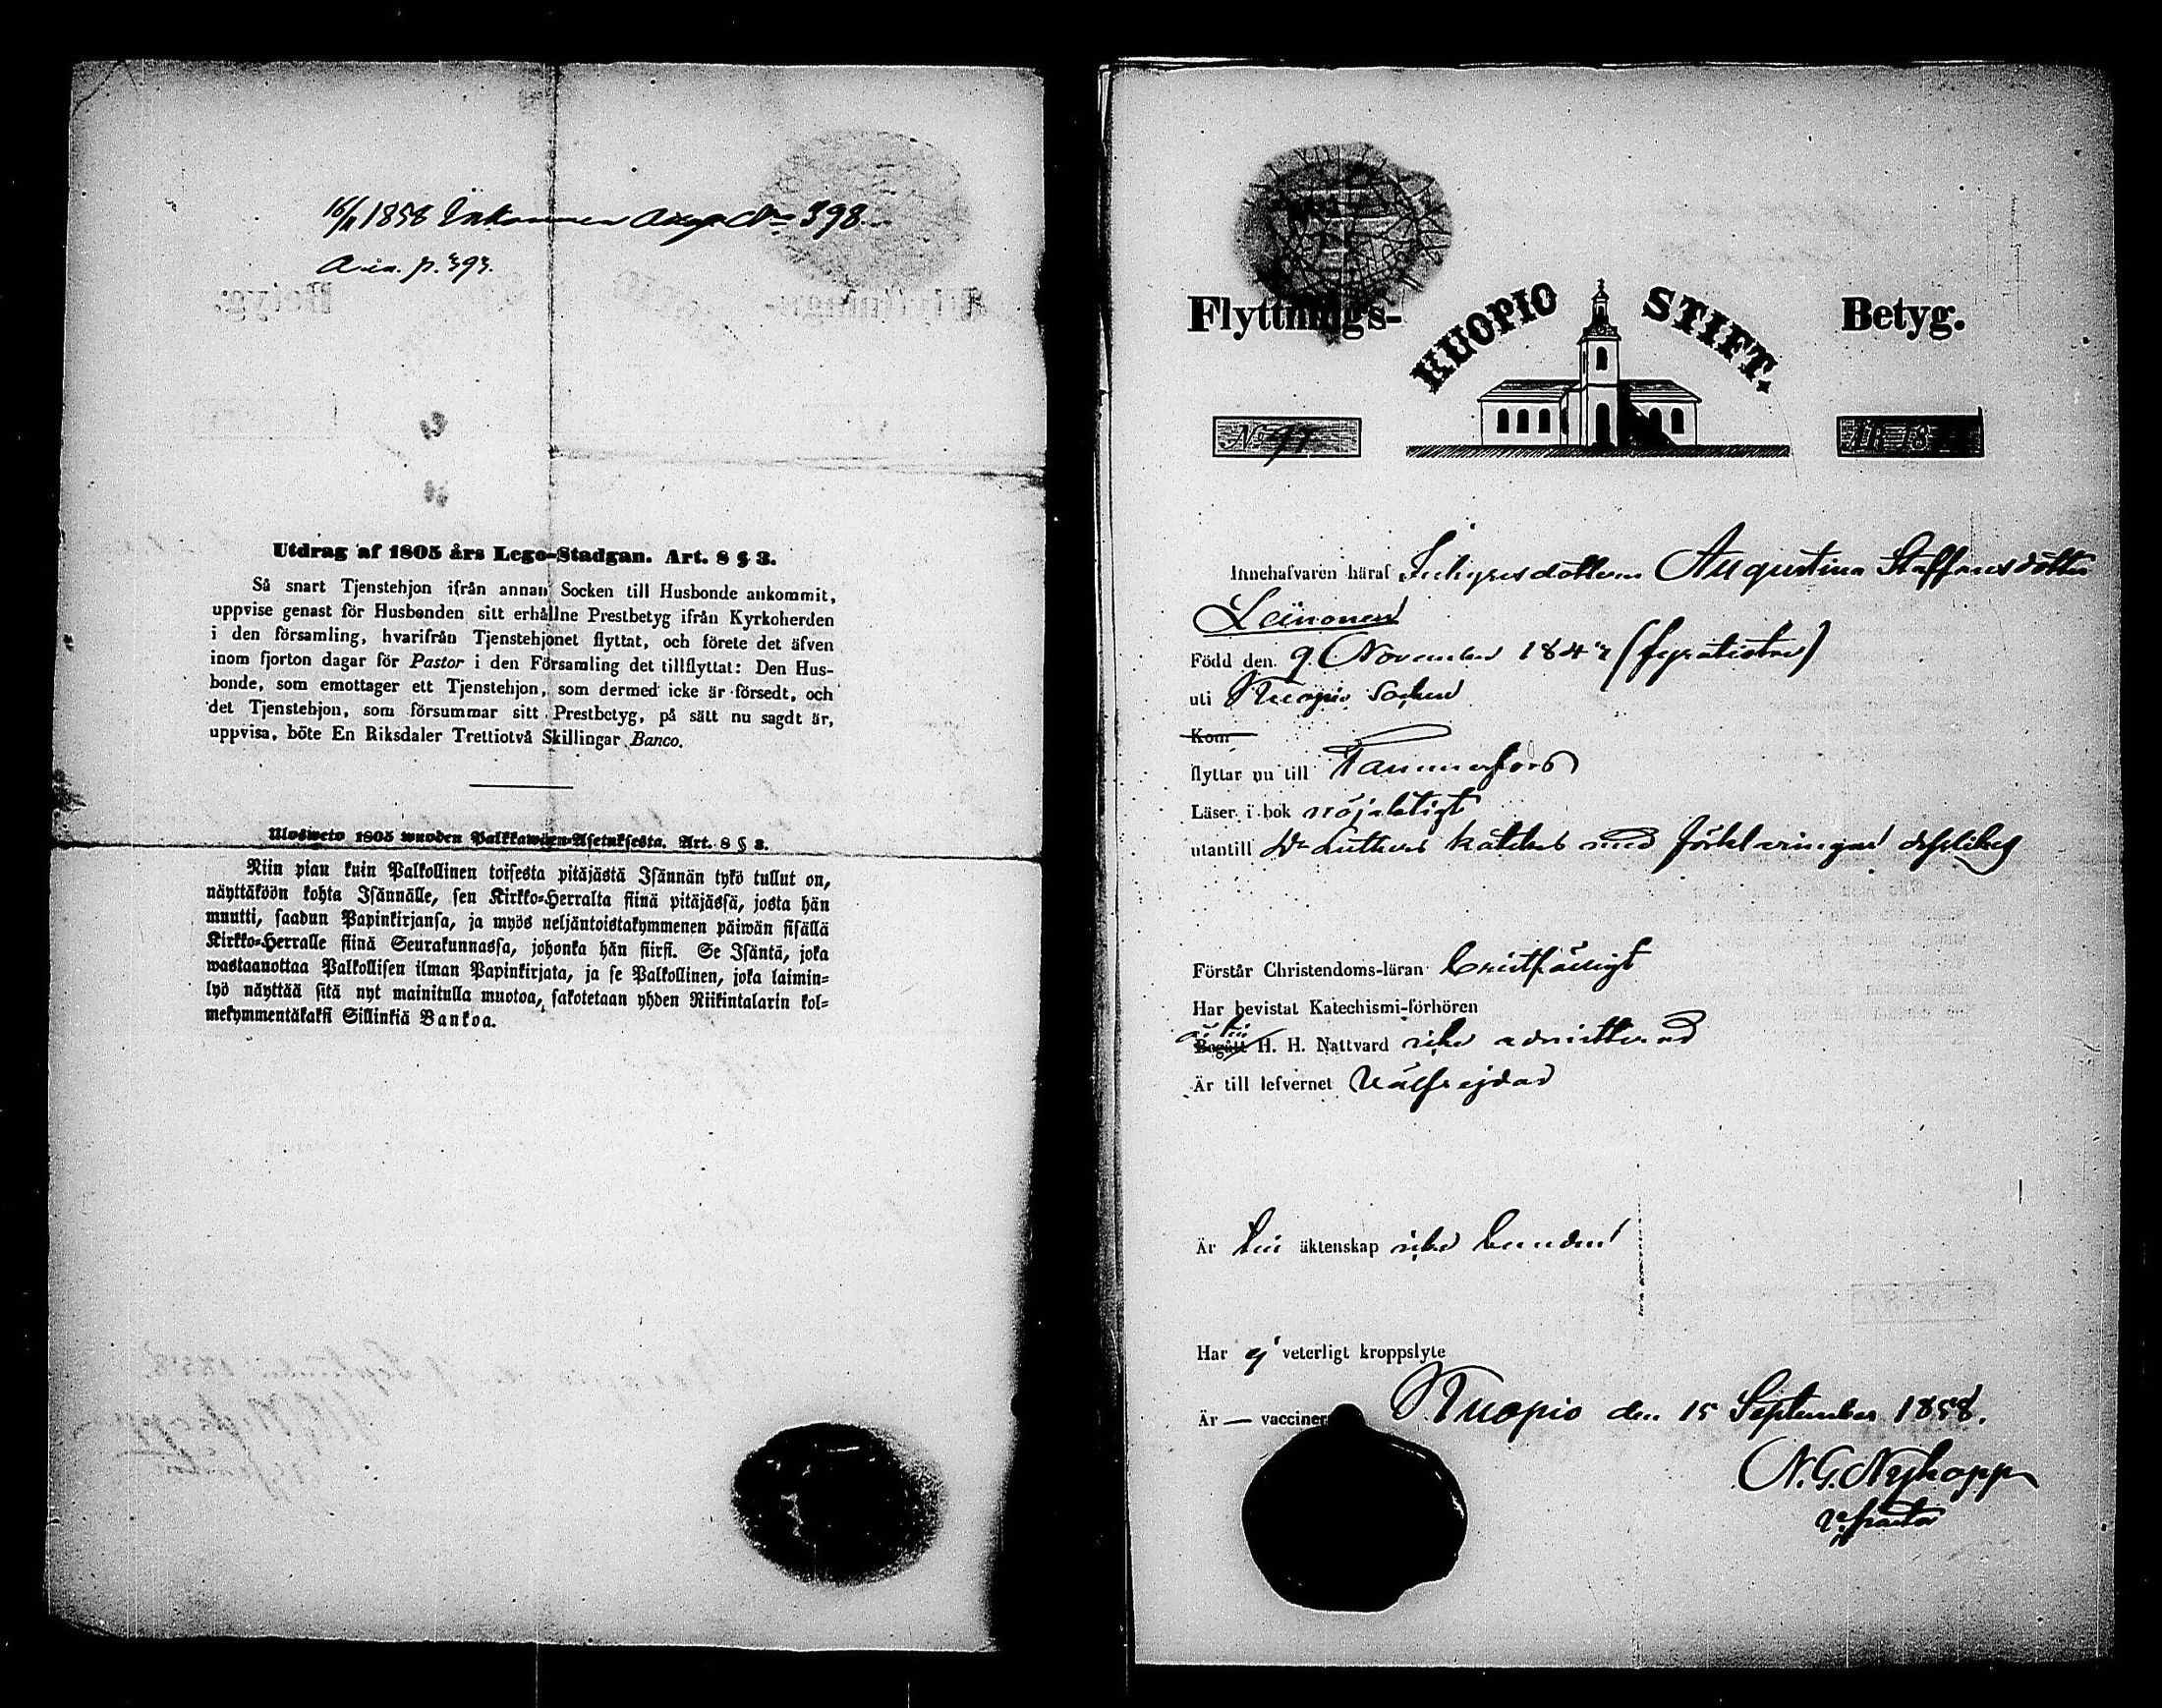 16/11 1858 Inkommen attest Nro 398.
A. in. p. 393.
Utdrag af 1805 års Lego-Stadgan. Art. 8 § 3.
Så snart Tjenstehjon ifrån annan Socken till Husbonde ankommit,
uppvise genast för Husbonden sitt erhållne Prestbetyg ifrån Kyrkoherden
i den församling, hvarifrån Tjenstehjonet flyttat, och förete det äfven
inom fjorton dagar för Pastor i den Församling det tillflyttat: Den Hus-
bonde, som emottager ett Tjenstehjon, som dermed icke är försedt, och
det Tjenstehjon, som försummar sitt Prestbetyg, på sätt nu sagdt är,
uppvisa, böte En Riksdaler Trettiotvå Skillingar Banco.
Ulosweto 1805 wuoden Palkkawäen-Asetuksesta. Art. 8 § 3.
Niin pian kuin Palkollinen toisesta pitäjästä Isännän tykö tullut on,
näyttäköön kohta Isännälle, sen Kirkko-Herralta siinä pitäjässä, josta hän
muutti, saadun Papinkirjansa, ja myös neljäntoistakymmenen päiwän sisällä
Kirkko-Herralle siinä Seurakunnassa, johonka hän siirsi. Se Isäntä, joka
wastaanottaa Palkollisen ilman Papinkirjata, ja se Palkollinen, joka laimin-
lyö näyttää sitä nyt mainitulla muotoa, sakotetaan yhden Riikintalarin kol-
mekymmentäkaksi Sillinkiä Bankoa.
Flyttnings- KUOPIO STIFT. Betyg.
No 97 ÅR 18
Innehafvaren häraf Inhysesdottern Augustina Staffansdotter
Leinonen
Född den 9 November 1844 (fyratiofyra)
uti Kuopio Socken
Kom
flyttar nu till Tammerfors
Läser i bok nöjaktigt
utantill Dr Luthers Kateches med förklaringar dylikt
Förstår Christendoms-läran enfaldigt
Har bevistat Katechismi-förhören
är till
Begått H. H. Nattvard icke admitterad
Är till lefvernet välfrejdad
Är till äktenskap icke bunden
Har ej veterligt kroppslyte
Är — vacciner
Kuopio den 15 September 1858.
N. G. Nykopp
v. pastor